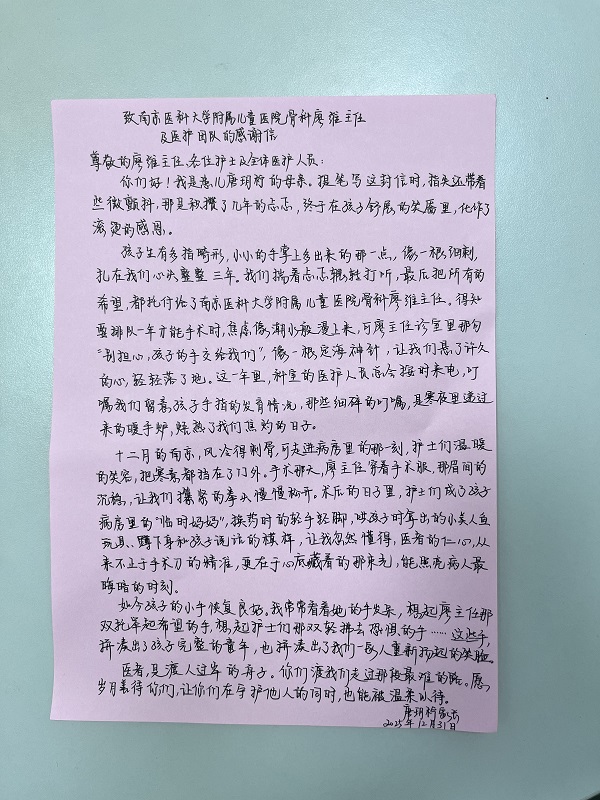 致南京医科大学附属儿童医院骨科廖维主任
及医护团队的感谢信
尊敬的廖维主任、各位护士及全体医护人员：
你们好！我是患儿唐玥的母亲。提笔写这封信时，指尖还带着
些微颤抖，那是积攒了几年的忐忑，终于在孩子舒展的笑靥里，化作了
滚烫的感恩。
孩子生有多指畸形，小小的手掌上多出来的那一点，像一根细刺，
扎在我们心头整整三年。我们揣着忐忑辗转打听，最后把所有的
希望，都托付给了南京医科大学附属儿童医院骨科廖维主任。得知
要排队一年才能手术时，焦虑像潮水般漫上来，可廖主任诊室里那句
“别担心，孩子的手交给我们”，像一根定海神针，让我们悬了许久
的心，轻轻落了地。这一年里，科室的医护人员总会按时来电，叮
嘱我们留意孩子手指的发育情况，那些细碎的叮嘱，是寒夜里递过
来的暖手炉，焐热了我们焦灼的日子。
十二月的南京，风冷得刺骨，可走进病房里的那一刻，护士们温暖
的笑容，把寒素都挡在了门外。手术那天，廖主任穿着手术服，那眉间的
沉稳，让我们攥紧的拳头慢慢松开。术后的日子里，护士们成了孩子
病房里的“临时妈妈”，换药时的轻手轻脚，哄孩子时拿出的小美人鱼
玩具、蹲下身和孩子说话的模样，让我忽然懂得，医者的仁心，从
来不止于手术刀的精准，更在于心底藏着的那束光，能照亮病人最
晦暗的时刻。
如今孩子的小手恢复良好。我常常看着她的手发呆，想起廖主任那
双托举起希望的手，想起护士们那双轻拂去恐惧的手……这些手，
拼凑出了孩子完整的童年，也拼凑出了我们一家人重新扬起的笑脸。
医者，是渡人过岸的舟子。你们渡我们走过那段最难的路。愿
岁月善待你们，让你们在守护他人的同时，也能被温柔以待。
唐玥家长
2025年12月31日